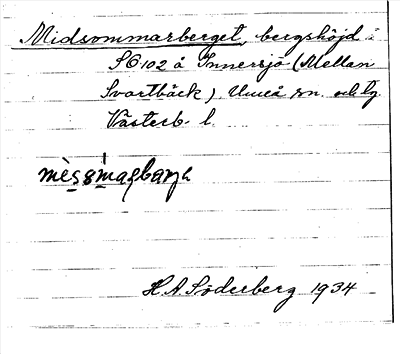 Midsommarberget, bergshöjd å
S6102 å Innersjö (Mellan
Svartbäck), Umeå sn. och tg.
Västerb. l.
H A Söderberg 1934